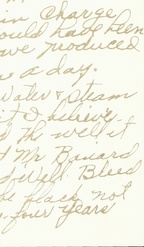 in Charge
ould have been
ave produced
s a day.
Water & Steam
it I believe
d the well it
t Mr Banard
d Well Bleed
be black not
four years